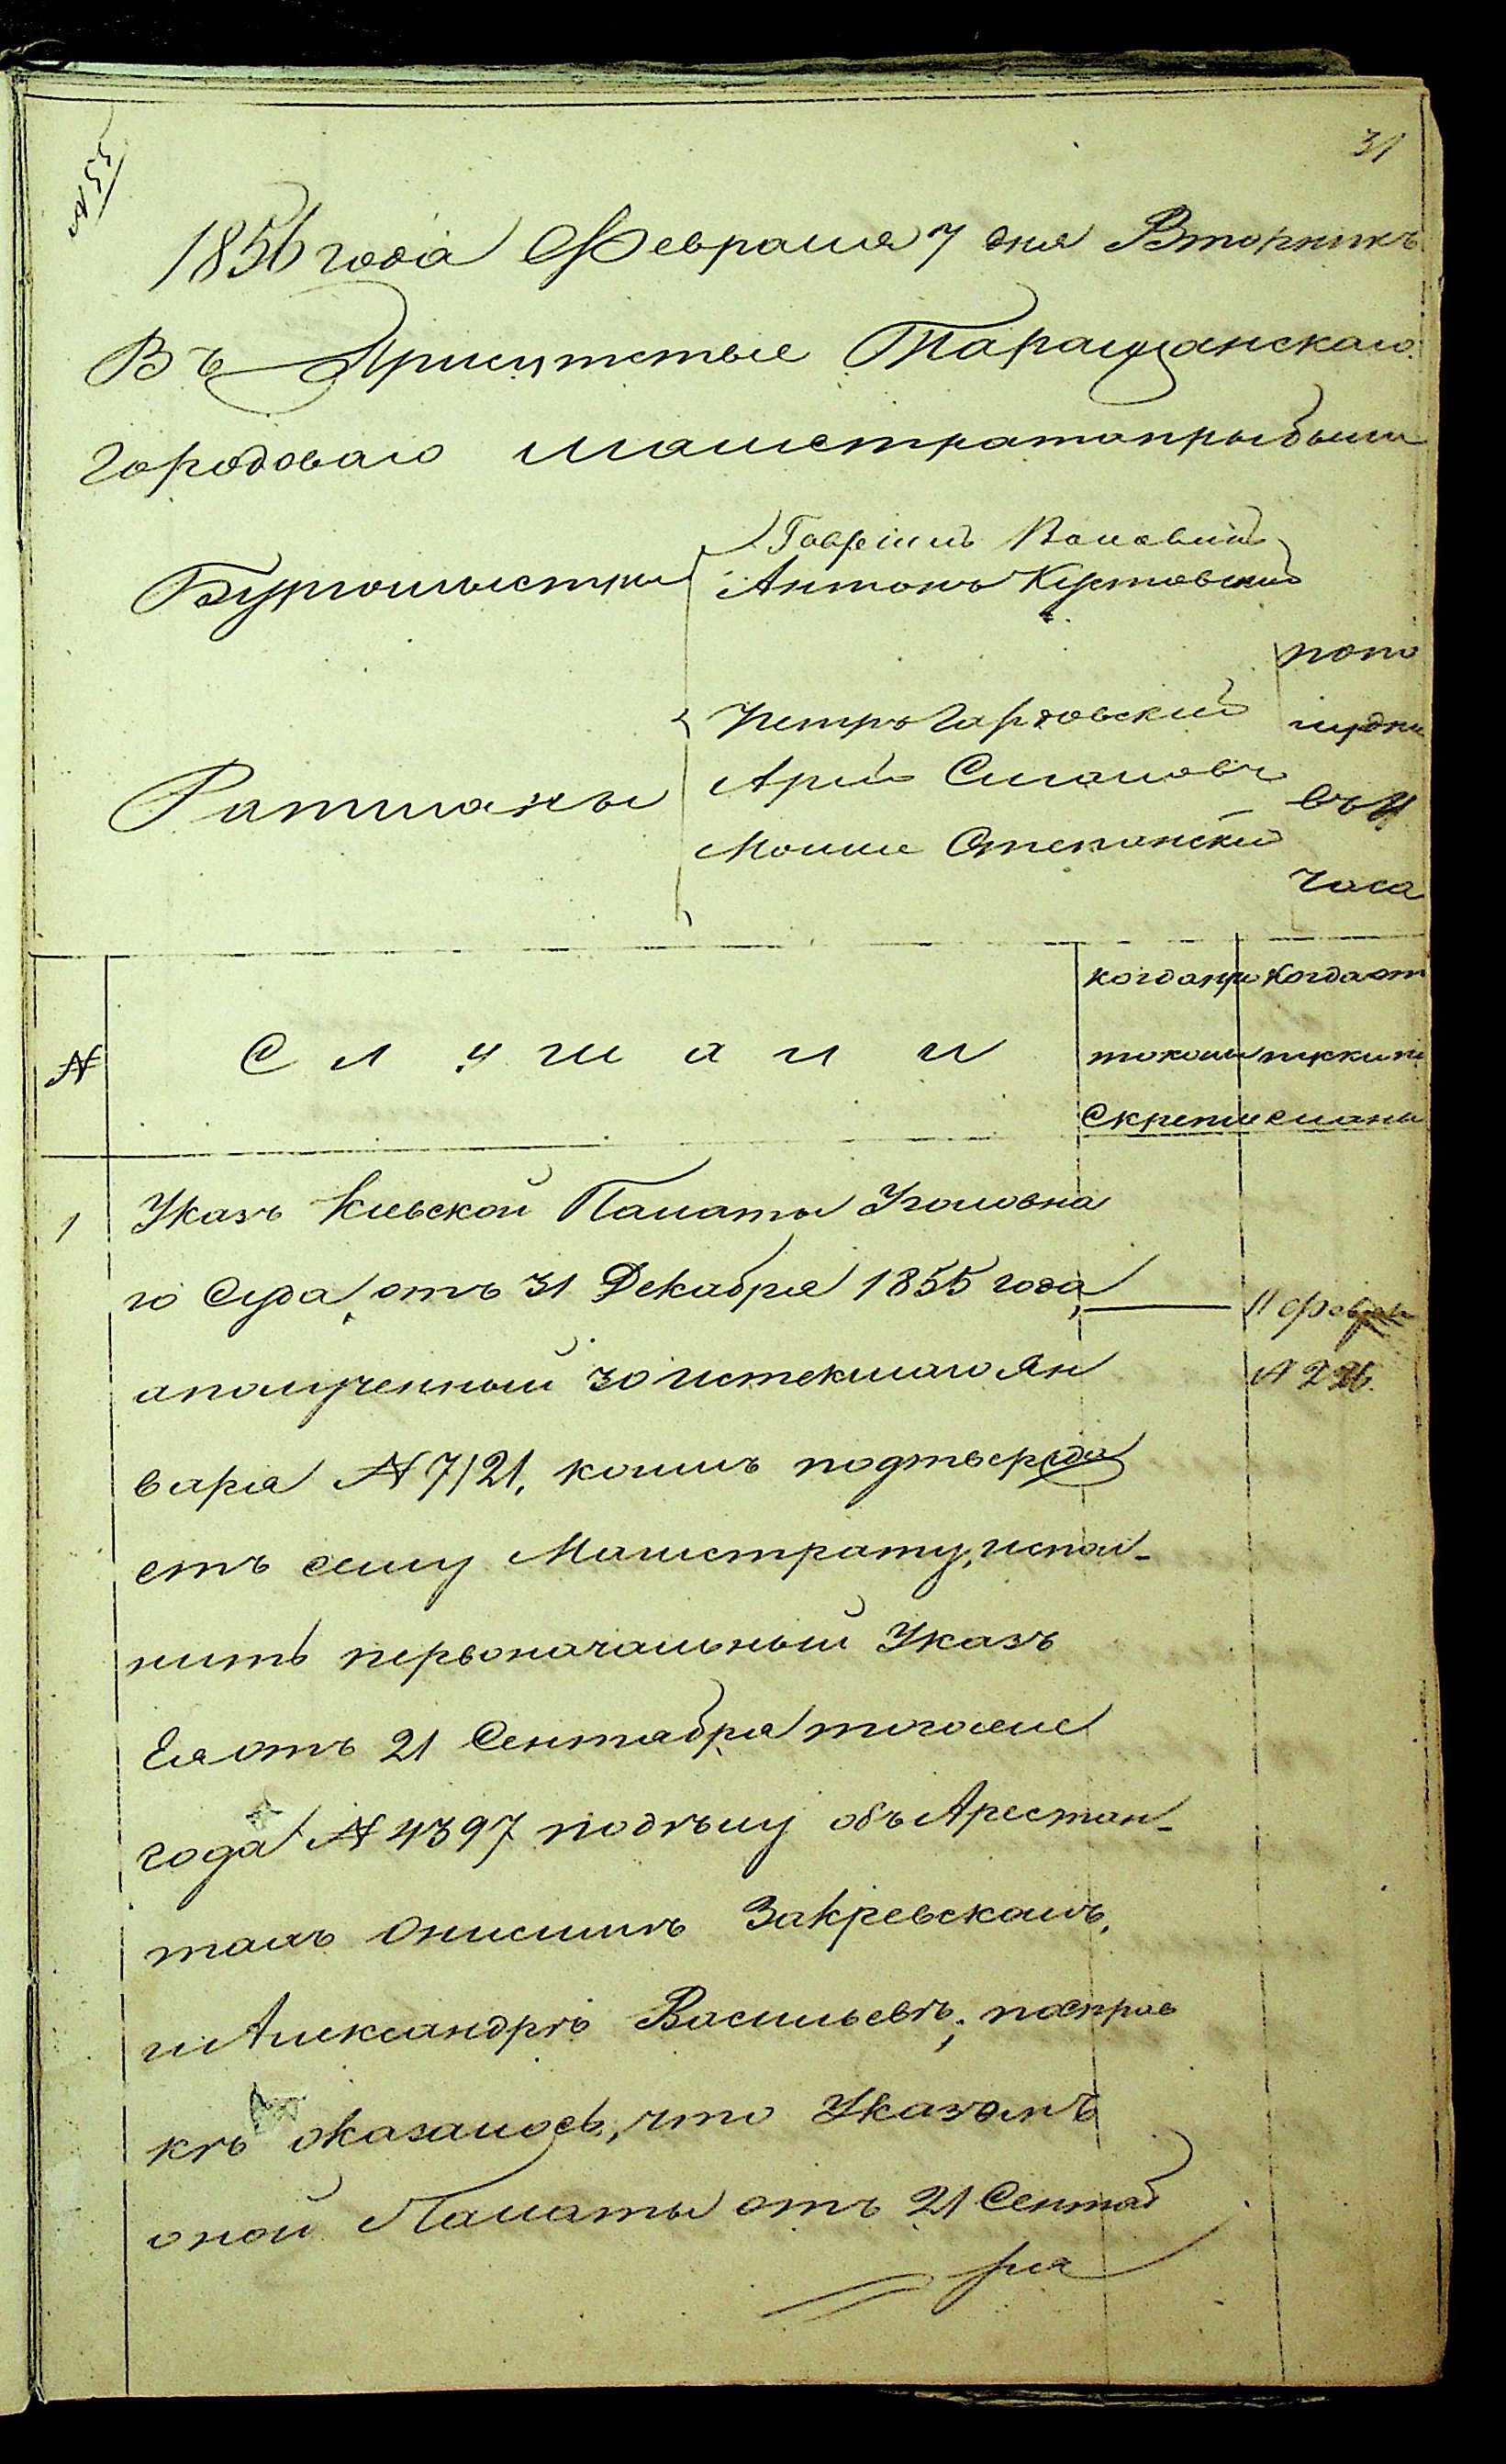 31
№ 53
1856 года Февраля 7 дня Вторникъ
Въ Присутствіе Таращанскаго
городоваго магистрата прыбыли
Бургомыстры
Гавріилъ
Антонъ Кустовскій
Ратманы
Петръ Гардовскій
Арій
Мошко Степанскій
попо
лудни
въ
часа
№
Слушали
когда про
токолъ
скрепле
когда от
пуски п
сланы
1
Указъ Кіевской Палаты Уголовна
го Суда, отъ 31 Декабря 1855 года,
а полученный 30 истекшаго Ян
варя № 7121, коимъ подтвержда
етъ сему Магистрату, испол-
нить первоначальный Указъ
Ея отъ 21 Сентября тогоже
года № 4397 подѣлу объ Арестан-
тахъ Онисимѣ Закревскомъ,
и Александрѣ Васильевѣ; посправ
кѣ оказалось, что Указомъ
оной Палаты отъ 21 Сентяб
ря
11 Февраля
№ 226.